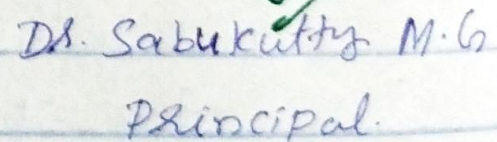 Dr. Sabukutty M.G
Principal.